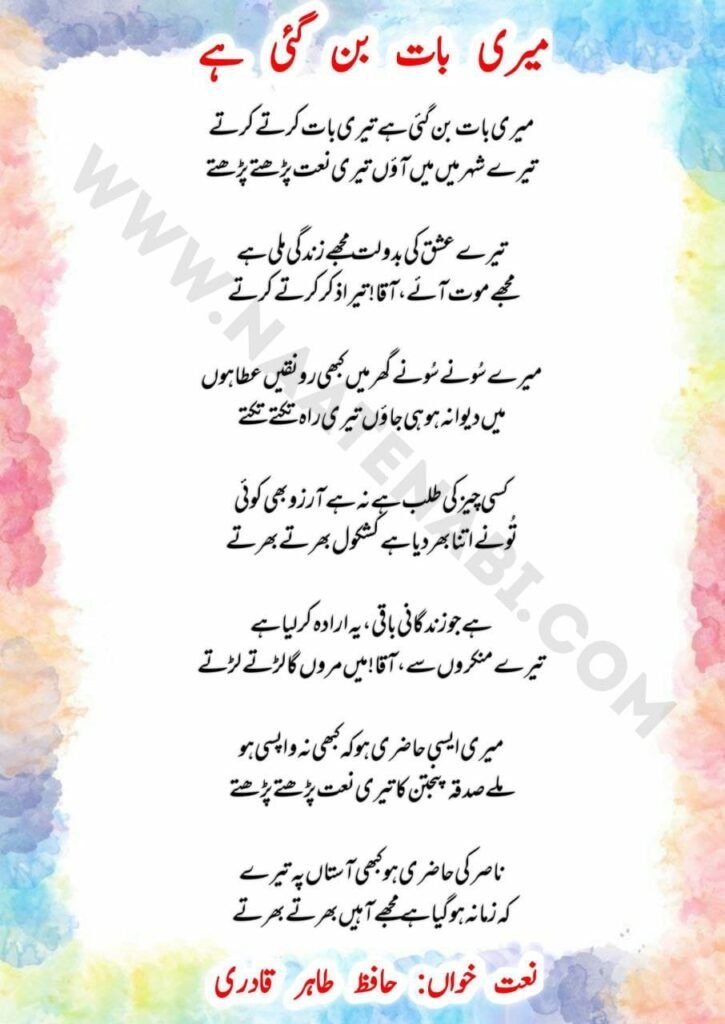 میری بات بن گئی ہے
میری بات بن گئی ہے تیری بات کرتے کرتے
تیرے شہر میں میں آؤں تیری نعت پڑھتے پڑھتے
تیرے عشق کی بدولت مجھے زندگی ملی ہے
مجھے موت آئے، آقا! تیرا ذکر کرتے کرتے
میرے سُونے سُونے گھر میں کبھی رونقیں عطا ہوں
میں دیوانہ ہو ہی جاؤں تیری راہ تکتے تکتے
کسی چیز کی طلب ہے نہ ہے آرزو بھی کوئی
تُو نے اتنا بھر دیا ہے کشکول بھرتے بھرتے
ہے جو زندگانی باقی، یہ ارادہ کر لیا ہے
تیرے منکروں سے، آقا! میں مروں گا لڑتے لڑتے
میری ایسی حاضری ہو کہ کبھی نہ واپسی ہو
ملے صدقہ پنجتن کا تیری نعت پڑھتے پڑھتے
ناصر کی حاضری ہو کبھی آستاں پہ تیرے
کہ زمانہ ہو گیا ہے مجھے آہیں بھرتے بھرتے
نعت خواں: حافظ طاہر قادری
WWW.NAATENABI.COM